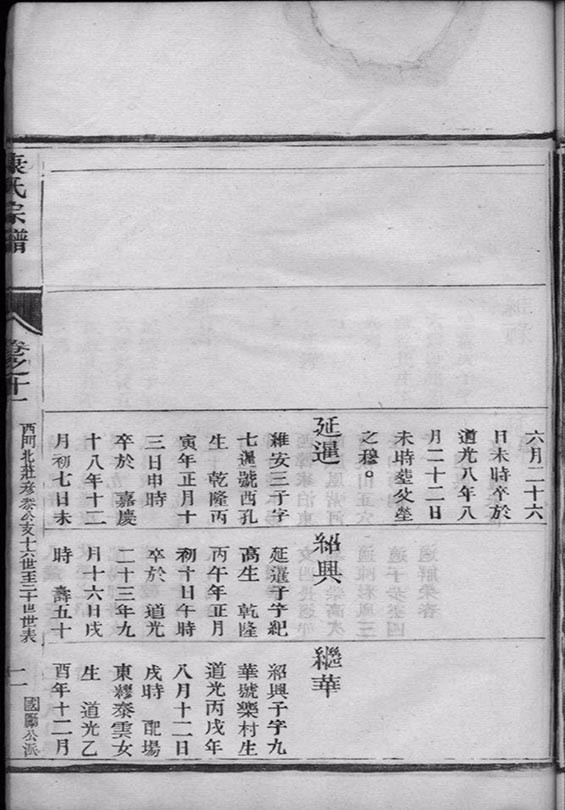 六月二十六
日未時卒於
道光八年八
月二十二日
未時塟父塋
之穆。
延暹
維安三子字
七暹號西孔
生 乾隆丙
寅年正月十
三日申時
卒於 嘉慶
十八年十二
月初七日未
紹興
延暹子字紀
高生 乾隆
丙午年正月
初十日午時
卒於 道光
二十三年九
月十六日戌
時 壽五十
繼華
紹興子字九
華號樂村生
道光丙戌年
八月十二日
戌時 配場
東繆泰雲女
生 道光乙
酉年十二月
康氏宗譜
卷之十一
西門北莊彥泰公支十六世至二十世世表
二
國聯公派